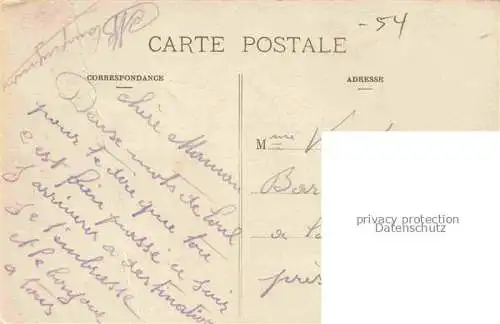 -54
CARTE POSTALE
CORRESPONDANCE
ADRESSE
chère Maman
Deuse mots de Toul
pour te dire que tou
c'est bien passé ce soir
J'arriverer a destination
Je t'embrasse
et le bonjour
a tous
Mme V
Bar
a
près
privacy protection
Datenschutz